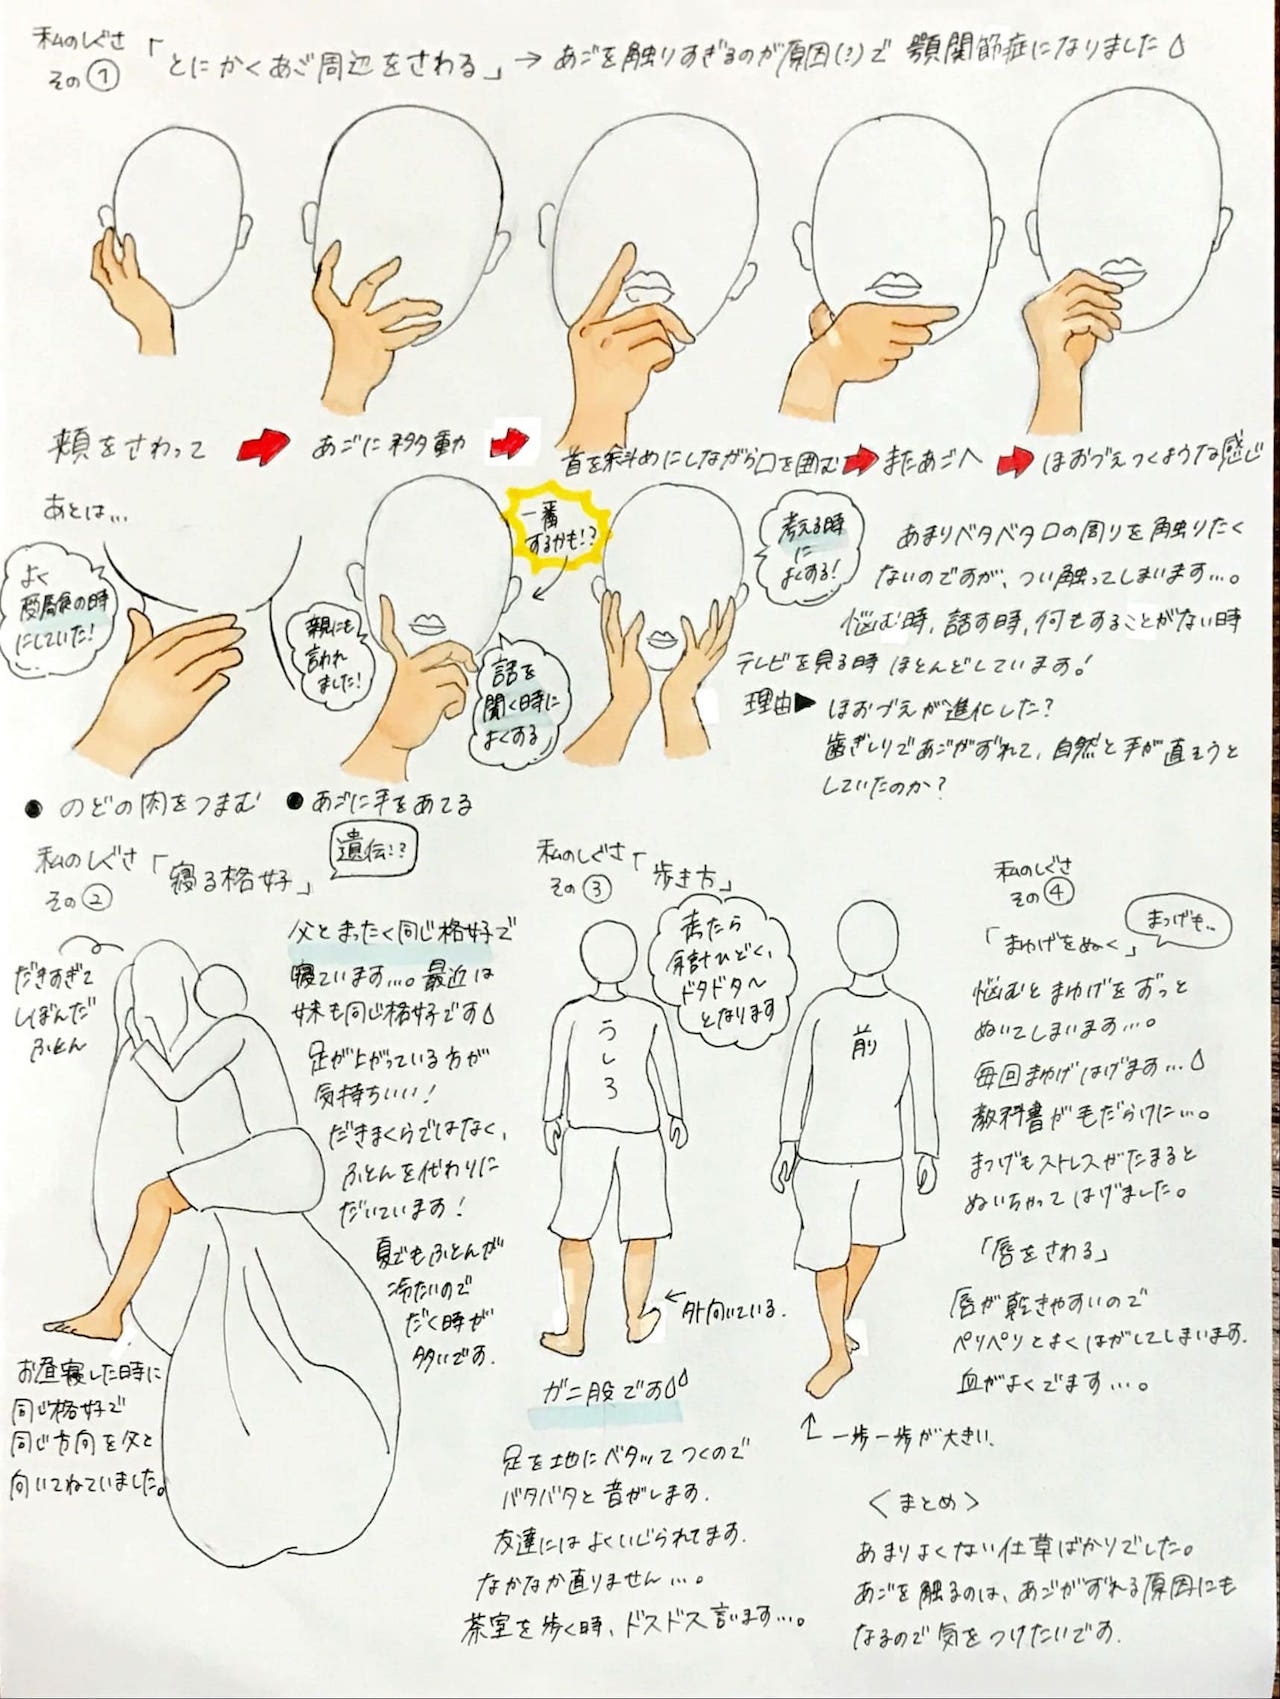 私のしぐさ
その①
「とにかくあご周辺をさわる」→あごを触りすぎるのが原因(?)で 顎関節症になりました
頬をさわって
あごに移動
首を斜めにしながら口を囲む
またあごへ
ほおづえつくような感じ
あとは…
よく
受信食の時
にしていた!
親にも
言われ
ました!
一番
するかも!?
話を
聞く時に
よくする
考える時
に
よくする!
あまりベタベタ口の周りを触りたく
ないのですが、つい触ってしまいます…。
悩む時、話す時、何もすることがない時
テレビを見る時 ほとんどしています!
理由▶ ほおづえが進化した?
歯ぎしりであごがずれて、自然と手が直そうと
していたのか?
● のどの肉をつまむ
● あごに手をあてる
私のしぐさ
その②
「寝る格好」
遺伝!?
だきすぎて
しぼんだ
ふとん
父とまったく同じ格好で
寝ています…。最近は
妹も同じ格好です
足が上がっている方が
気持ちいい!
だきまくらではなく、
ふとんを代わりに
だいています!
夏でもふとんが
冷たいので
だく時が
多いです.
お昼寝した時に
同じ格好で
同じ方向を父と
向いてねていました。
私のしぐさ
その③
「歩き方」
走たら
余計ひどく、
ドタドタ〜
となります
うしろ
前
←外向いている.
ガニ股です
一歩一歩が大きい.
足を地にベタッてつくので
バタバタと音がします.
友達にはよくいじられてます.
なかなか直りません…。
茶室を歩く時、ドスドス言います…。
私のしぐさ
その④
「まゆげをぬく」
まつげも…
悩むとまゆげをずっと
ぬいてしまいます…。
毎回まゆげはげます…
教科書が毛だらけに…。
まつげもストレスがたまると
ぬいちゃってはげました。
「唇をさわる」
唇が乾きやすいので
ペリペリとよくはがしてしまいます.
血がよくでます…。
<まとめ>
あまりよくない仕草ばかりでした。
あごを触るのは、あごがずれる原因にも
なるので気をつけたいです.